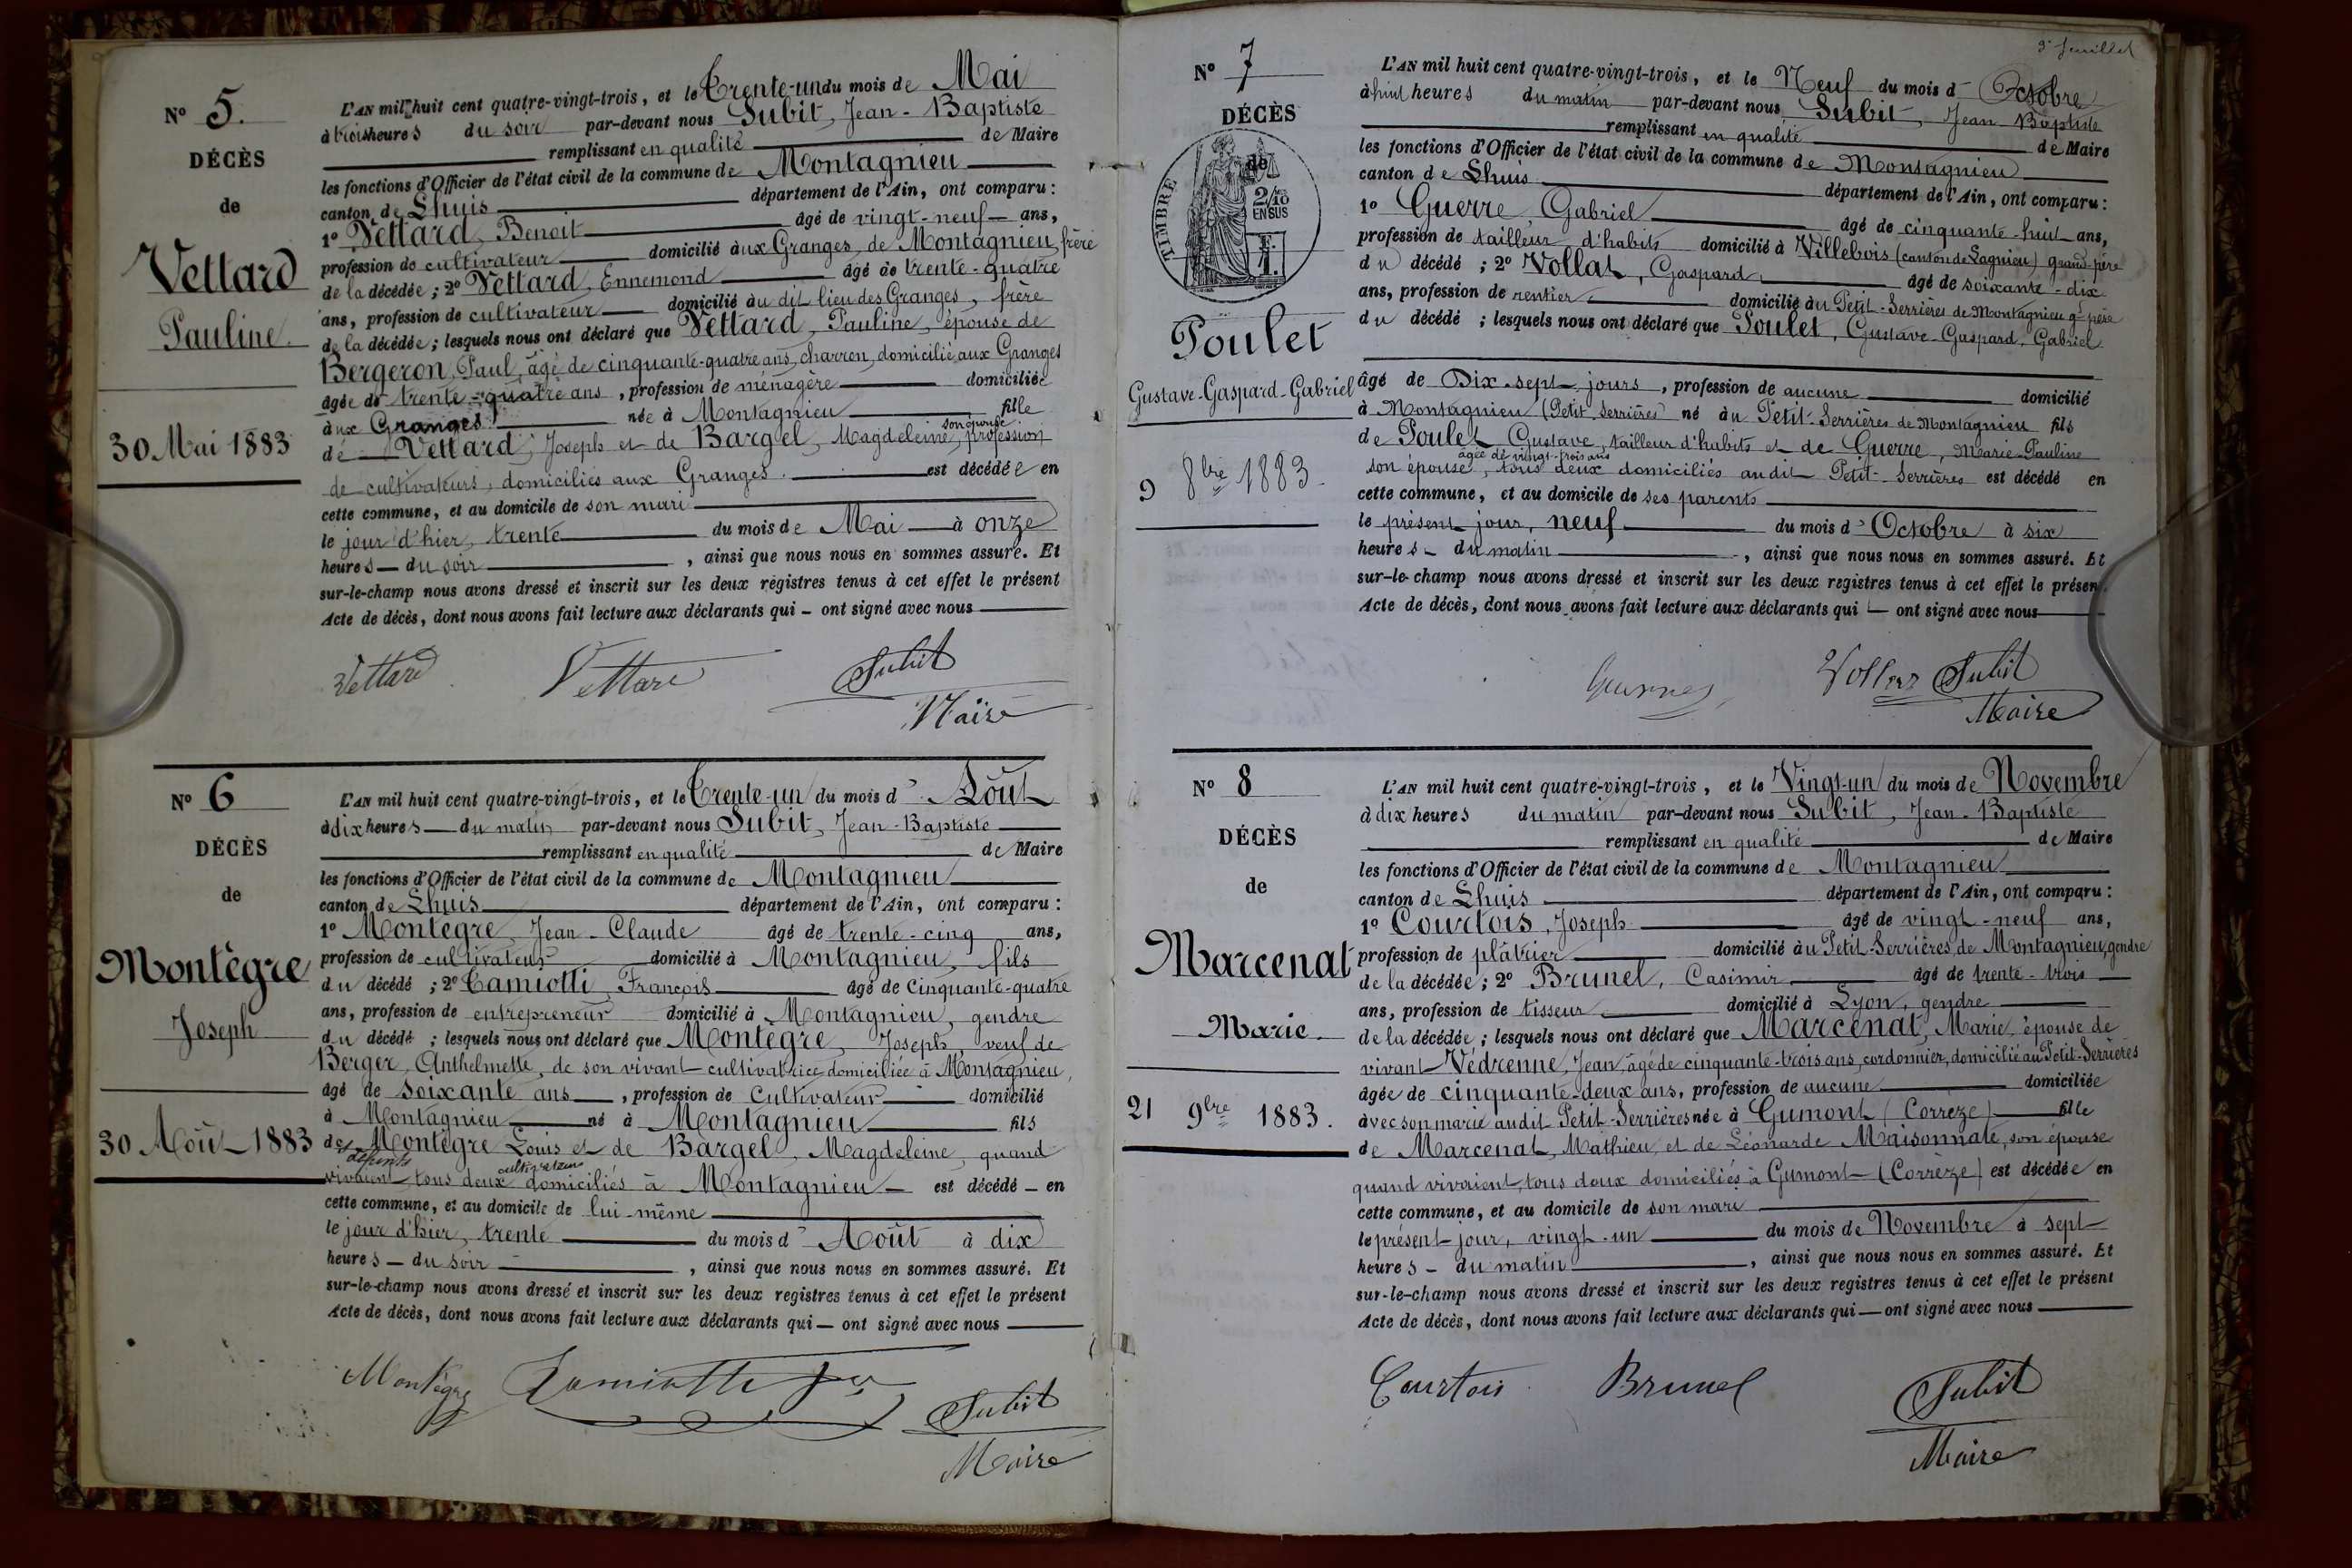 N° 5.
DÉCÈS
de
Vettard
Pauline.
30 Mai 1883
L'AN mil huit cent quatre-vingt-trois, et le Trente-un du mois de Mai
à trois heures du soir par-devant nous Subit, Jean-Baptiste
remplissant en qualité de Maire
les fonctions d'Officier de l'état civil de la commune de Montagnieu
canton de Lhuis département de l'Ain, ont comparu :
1° Vettard, Benoit âgé de vingt-neuf ans,
profession de cultivateur domicilié aux Granges, de Montagnieu, frère
de la décédée ; 2° Vettard, Ennemond âgé de trente-quatre
ans, profession de cultivateur domicilié au dit lieu des Granges, frère
de la décédée ; lesquels nous ont déclaré que Vettard, Pauline, épouse de
Bergeron, Paul, âgé de cinquante-quatre ans, charron, domicilié aux Granges
âgée de trente-quatre ans, profession de ménagère domiciliée
aux Granges née à Montagnieu fille
de Vettard, Joseph et de Bargel, Magdeleine, son épouse, profession
de cultivateurs, domiciliés aux Granges. est décédée en
cette commune, et au domicile de son mari
le jour d'hier, trente du mois de Mai à onze
heures du soir, ainsi que nous nous en sommes assuré. Et
sur-le-champ nous avons dressé et inscrit sur les deux registres tenus à cet effet le présent
Acte de décès, dont nous avons fait lecture aux déclarants qui ont signé avec nous
Vettard Vettard Subit
Maire
N° 6
DÉCÈS
de
Montègre
Joseph
30 Août 1883
L'AN mil huit cent quatre-vingt-trois, et le Trente-un du mois d' Août
à dix heures du matin par-devant nous Subit, Jean-Baptiste
remplissant en qualité de Maire
les fonctions d'Officier de l'état civil de la commune de Montagnieu
canton de Lhuis département de l'Ain, ont comparu :
1° Montègre, Jean-Claude âgé de trente-cinq ans,
profession de cultivateur domicilié à Montagnieu, fils
du décédé ; 2° Camiotti, François âgé de Cinquante-quatre
ans, profession de entrepreneur domicilié à Montagnieu, gendre
du décédé ; lesquels nous ont déclaré que Montègre, Joseph, veuf de
Berger, Anthelmette, de son vivant cultivatrice domiciliée à Montagnieu,
âgé de Soixante ans, profession de Cultivateur domicilié
à Montagnieu né à Montagnieu fils
de Montègre Louis et de Bargel, Magdeleine, quand
vivaient, tous deux cultivateurs domiciliés à Montagnieu est décédé en
cette commune, et au domicile de lui-même
le jour d'hier, trente du mois d' Août à dix
heures du soir, ainsi que nous nous en sommes assuré. Et
sur-le-champ nous avons dressé et inscrit sur les deux registres tenus à cet effet le présent
Acte de décès, dont nous avons fait lecture aux déclarants qui ont signé avec nous
Montègre Subit
Maire
3e feuillet
N° 7
DÉCÈS
de
TIMBRE
2/10
EN SUS
Poulet
Gustave-Gaspard-Gabriel
9 8bre 1883.
L'AN mil huit cent quatre-vingt-trois, et le Neuf du mois d' Octobre
à huit heures du matin par-devant nous Subit, Jean Baptiste
remplissant en qualité de Maire
les fonctions d'Officier de l'état civil de la commune de Montagnieu
canton de Lhuis département de l'Ain, ont comparu :
1° Guerre, Gabriel âgé de cinquante-huit ans,
profession de tailleur d'habits domicilié à Villebois (canton de Lagnieu) grand-père
du décédé ; 2° Vollat, Gaspard, âgé de soixante-dix
ans, profession de rentier domicilié au Petit-Serrières de Montagnieu gd père
du décédé ; lesquels nous ont déclaré que Poulet, Gustave-Gaspard-Gabriel
âgé de Dix-sept jours, profession de aucune domicilié
à Montagnieu (Petit-Serrières) né au Petit-Serrières de Montagnieu fils
de Poulet Gustave, tailleur d'habits et de Guerre, Marie-Pauline
âgée de vingt-trois ans
son épouse, tous deux domiciliés au dit Petit-Serrières est décédé en
cette commune, et au domicile de ses parents
le présent jour, neuf du mois d' Octobre à six
heures du matin, ainsi que nous nous en sommes assuré. Et
sur-le-champ nous avons dressé et inscrit sur les deux registres tenus à cet effet le présent
Acte de décès, dont nous avons fait lecture aux déclarants qui ont signé avec nous
Subit
Maire
N° 8
DÉCÈS
de
Marcenat
Marie.
21 9bre 1883.
L'AN mil huit cent quatre-vingt-trois, et le Vingt-un du mois de Novembre
à dix heures du matin par-devant nous Subit, Jean-Baptiste
remplissant en qualité de Maire
les fonctions d'Officier de l'état civil de la commune de Montagnieu
canton de Lhuis département de l'Ain, ont comparu :
1° Courtois, Joseph âgé de vingt-neuf ans,
profession de plâtrier domicilié au Petit-Serrières de Montagnieu, gendre
de la décédée ; 2° Brunel, Casimir âgé de trente-trois
ans, profession de tisseur domicilié à Lyon, gendre
de la décédée ; lesquels nous ont déclaré que Marcenat, Marie, épouse de
vivant Védrenne, Jean, âgé de cinquante-trois ans, cordonnier, domicilié au Petit-Serrières
âgée de cinquante-deux ans, profession de aucune domiciliée
avec son marie au dit Petit-Serrières née à Gumont (Corrèze) fille
de Marcenat, Mathieu, et de Léonarde Maisonnate, son épouse
quand vivaient, tous deux domiciliés à Gumont (Corrèze) est décédée en
cette commune, et au domicile de son mari
le présent jour, vingt-un du mois de Novembre à sept
heures du matin, ainsi que nous nous en sommes assuré. Et
sur-le-champ nous avons dressé et inscrit sur les deux registres tenus à cet effet le présent
Acte de décès, dont nous avons fait lecture aux déclarants qui ont signé avec nous
Courtois Brunel Subit
Maire